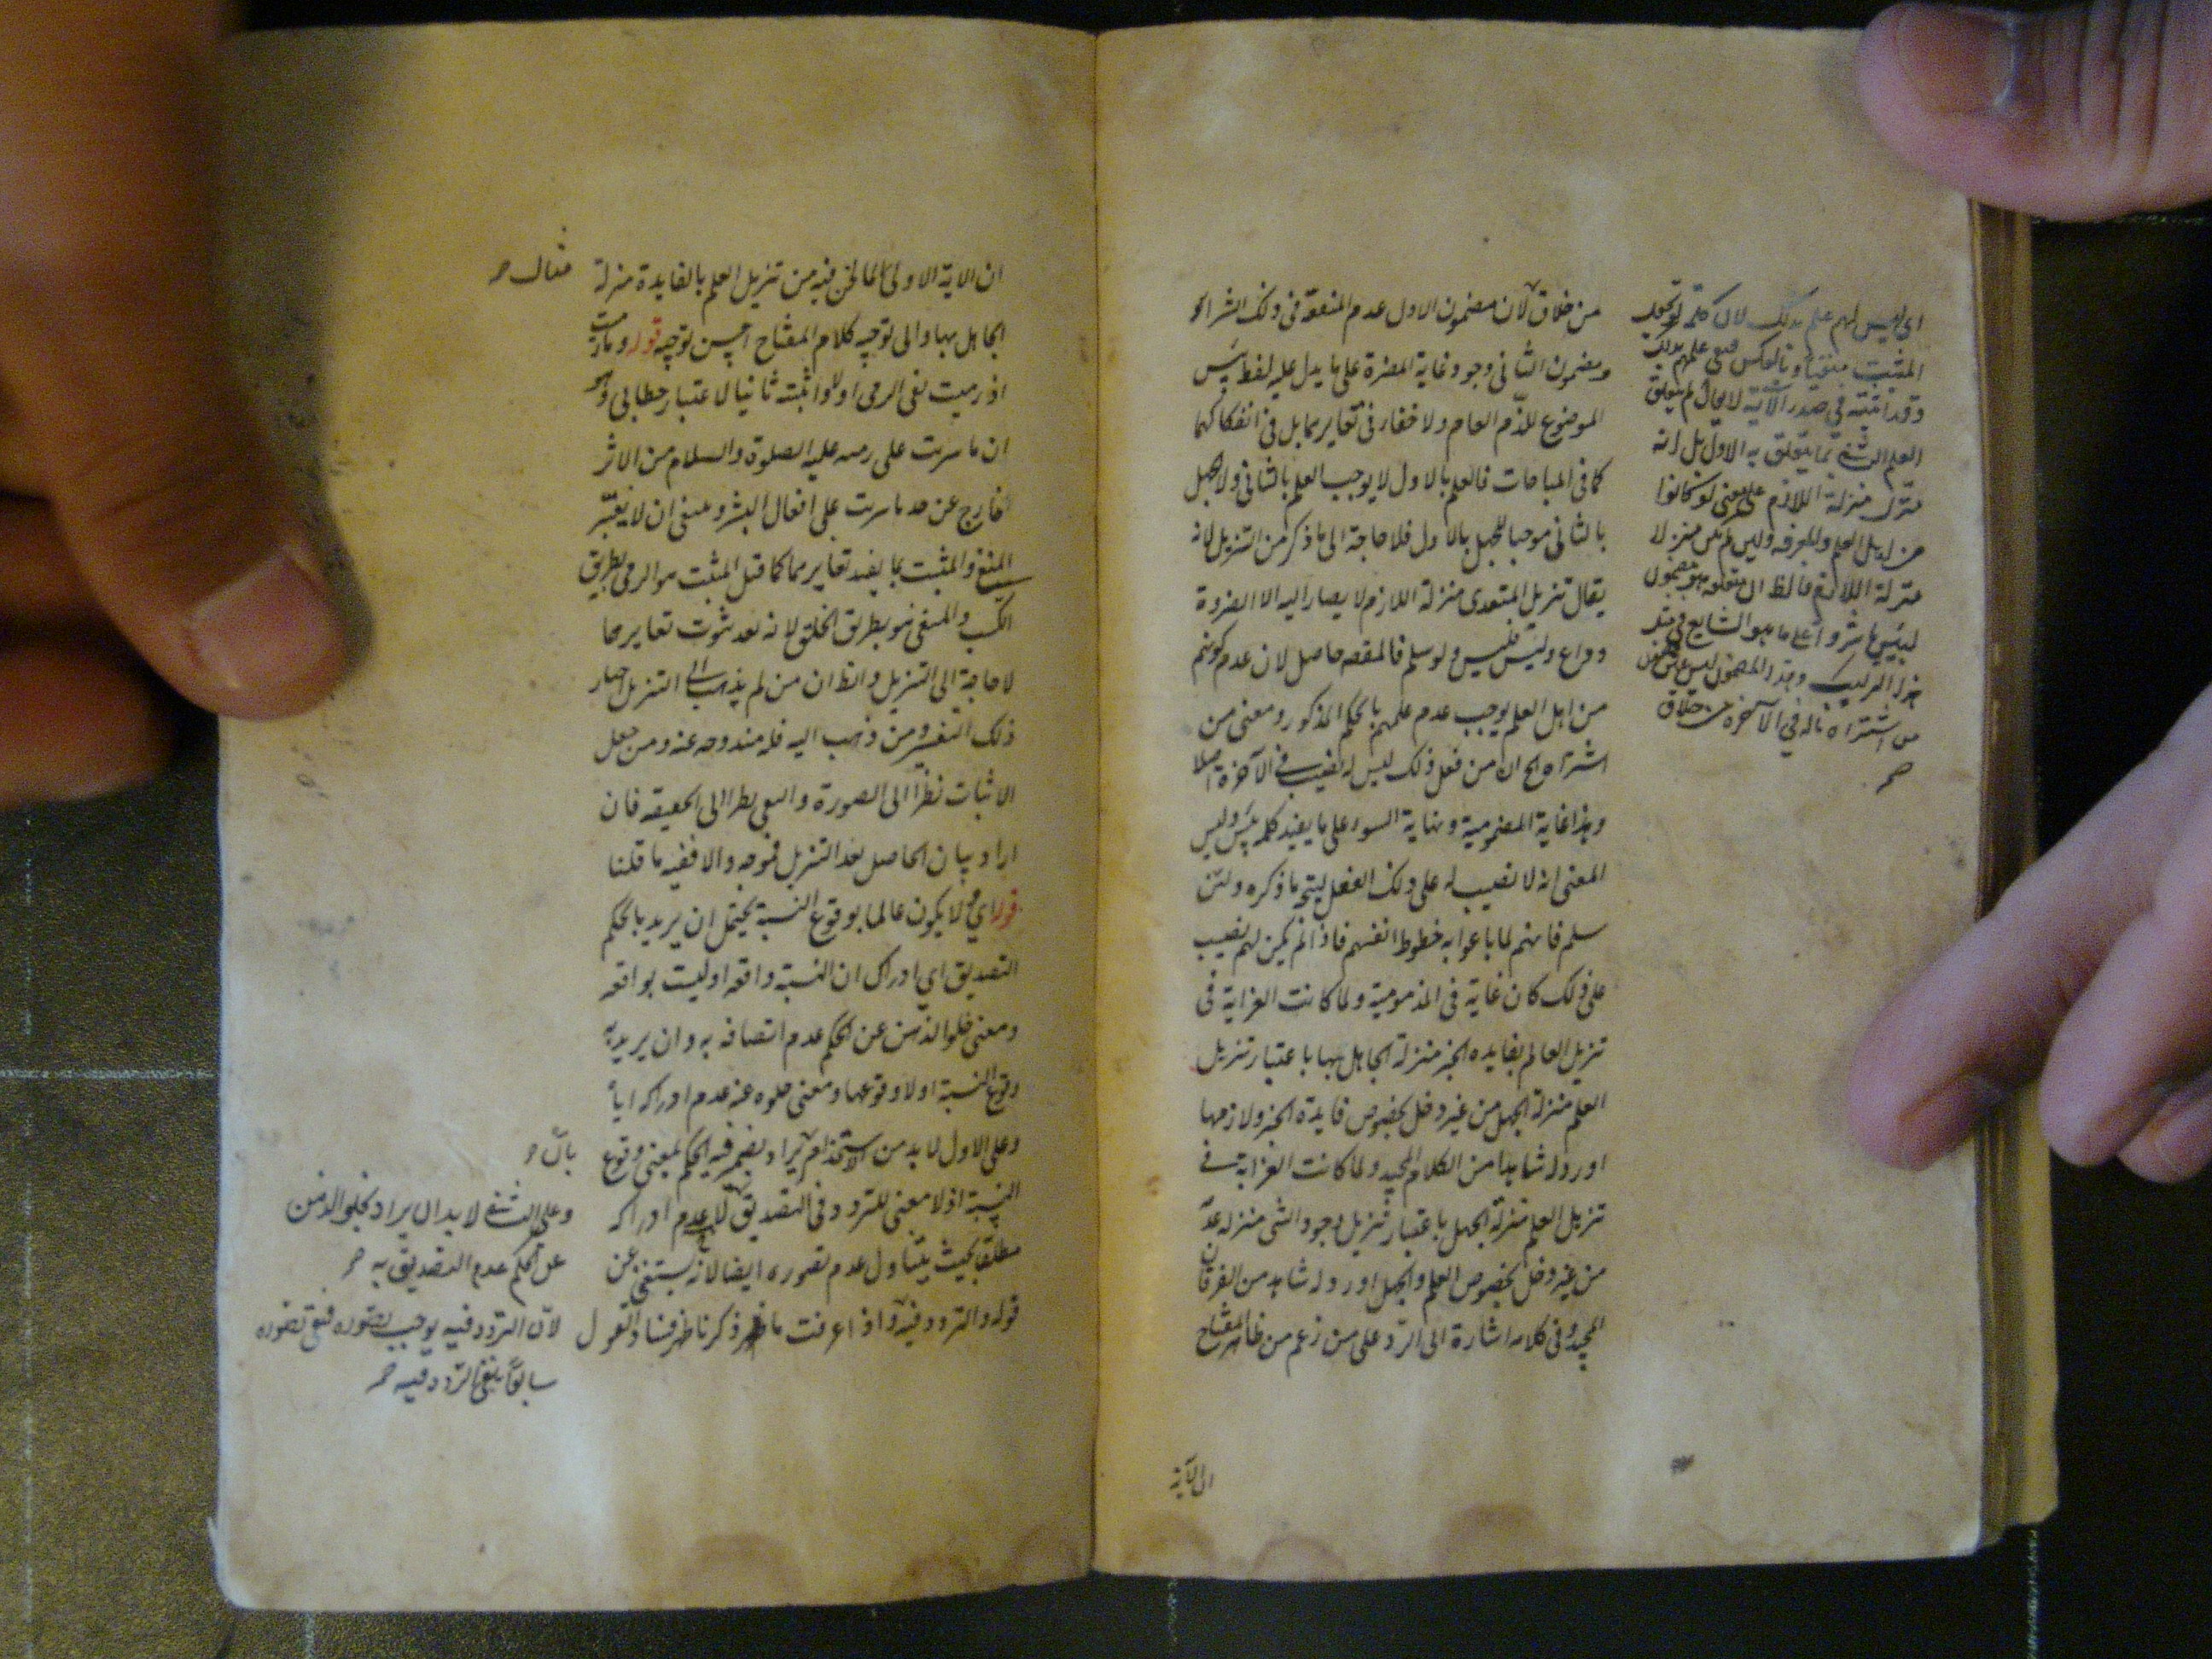 من خلاق لان مضمون الاول عدم المنفعة فى ذلك الشراء
ومضمون الثانى وجود غاية المضرة على ما يدل عليه لفظ بئس
الموضوع للذم العام ولا خفاء فى تغايرهما بل فى انفكاكهما
كما فى المباحات فالعلم بالاول لا يوجب العلم بالثانى ولا الجهل
بالثانى موجبا للجهل بالاول فلا حاجة الى ما ذكر من التنزيل لانه
يقال تنزيل المتعدى منزلة اللازم لا يصار اليه الا لضرورة
وداع وليس فليس ولو سلم فالمقصد حاصل لان عدم كونهم
من اهل العلم يوجب عدم علمهم بالحكم المذكور ومعنى من
اشتراه الخ ان من فعل ذلك ليس له نصيب فى الآخرة اصلا
وهذا غاية المذمومية ونهاية السوء على ما يفيد كلمة بئس وليس
المعنى انه لا نصيب له على ذلك الفعل ليتجه ما ذكره ولئن
سلم فانهم لما باعوا به حظوظ انفسهم فاذا لم يكن لهم نصيب
على ذلك كان غاية فى المذمومية ولما كانت الغرابة فى
تنزيل العالم بفايده الخبر منزلة الجاهل بها باعتبار تنزيل
العلم منزلة الجهل من غير دخل بخصوص فايدة الخبر ولازمها
اورد له شاهدا من الكلام المجيد ولما كانت الغرابة فى
تنزيل العلم منزلة الجهل باعتبار تنزيل وجود الشئ منزله عدمه
من غير دخل بخصوص العلم والجهل اورد له شاهد من الفرقان
المجيد وفى كلامه اشارة الى الرد على من زعم من ظاهر المفتاح
ان الآية
اى ليس لهم علم بذلك لان كلمة لو تجعل
المثبت منفيا وبالعكس فنفى علمهم بذلك
وقد اثبته فى صدر الآية لا يقال لم يتعلق
العلم الثانى بما يتعلق به الاول بل انه
منزل منزلة اللازم على معنى لو كانوا
من اهل العلم والمعرفه ولئن لم يكن منزلا
منزلة اللازم فالظ ان متعلقه هو مضمون
لبئس ما شروا على ما هو الشايع فى مثل
هذا التركيب وهذا المضمون ليس عين مضمون
من اشتراه ما له فى الآخرة من خلاق
صح
ان الاية الاولى لما نحن فيه من تنزيل العلم بالفايدة منزلة
الجاهل بها والى توجيه كلام المفتاح احسن توجيه قوله وما رميت
اذ رميت نفى الرمى اولا واثبته ثانيا لاعتبار خطابى وهو
ان ما سرت على رميه عليه الصلوة والسلام من الاثر
خارج عن حد ما سرت على افعال البشر وينبغى ان لا يفسر
المنفى والمثبت بما يفيد تغايرهما كما قيل المثبت هو الرمى بطريق
الكسب والمنفى هو بطريق الخلق لانه بعد ثبوت تغايرهما
لا حاجة الى التنزيل والظ ان من لم يذهب الى التنزيل اختار
ذلك التفسير ومن ذهب اليه فله مندوحه عنه ومن جعل
الاثبات نظرا الى الصورة والنفى نظرا الى الحقيقه فان
اراد بيان الحاصل بعد التنزيل فتوجه والا ففيه ما قلنا
قوله اي لا يكون عالما بوقوع النسبة يحتمل ان يريد بالحكم
التصديق اي ادراك ان النسبة واقعه او ليست بواقعه
ومعنى خلو الذهن عن الحكم عدم اتصافه به وان يريد به
وقوع النسبة او لا وقوعها ومعنى خلوه عنه عدم ادراكه اياه
وعلى الاول لا بد من الاستخدام بان يراد بضمير فيه الحكم بمعنى وقوع
النسبة اذ لا معنى للتردد فى التصديق لا عدم ادراكه
مطلقا بحيث يتناول عدم تصوره ايضا لانه يستغنى عن
قوله والتردد فيه واذا عرفت ما ذكرنا ظهر فساد القول
صح
بان صح
وعلى الثانى لا بد ان يراد بخلو الذهن
عن الحكم عدم التصديق به صح
لان التردد فيه يوجب تصوره فنفى تصوره
سابقا ينفى التردد فيه صح